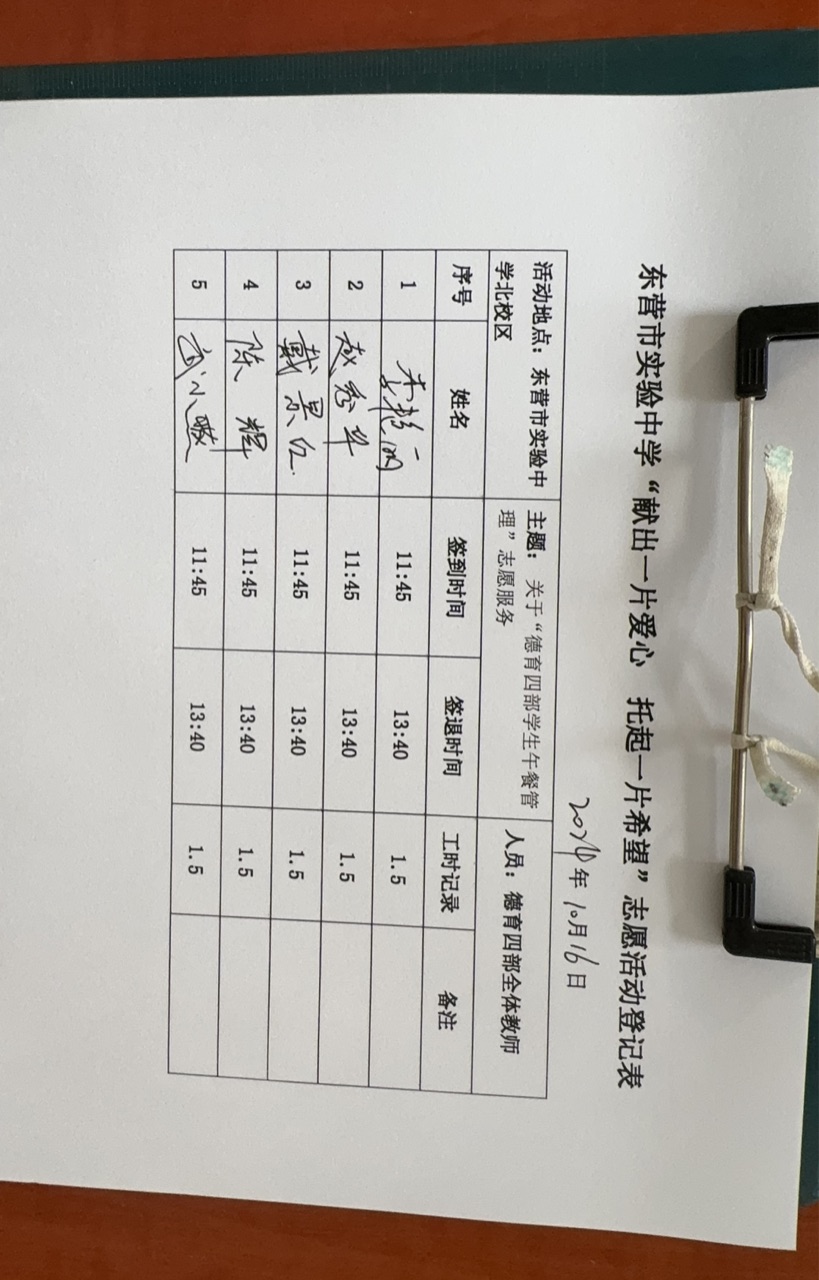 东营市实验中学“献出一片爱心 托起一片希望”志愿活动登记表
年10月16日
活动地点：东营市实验中学北校区 主题：关于“德育四部学生午餐管理”志愿服务 人员：德育四部全体教师
序号 姓名 签到时间 签退时间 工时记录 备注
1 11:45 13:40 1.5
2 赵秀华 11:45 13:40 1.5
3 戴景红 11:45 13:40 1.5
4 陈辉 11:45 13:40 1.5
5 武小敏 11:45 13:40 1.5